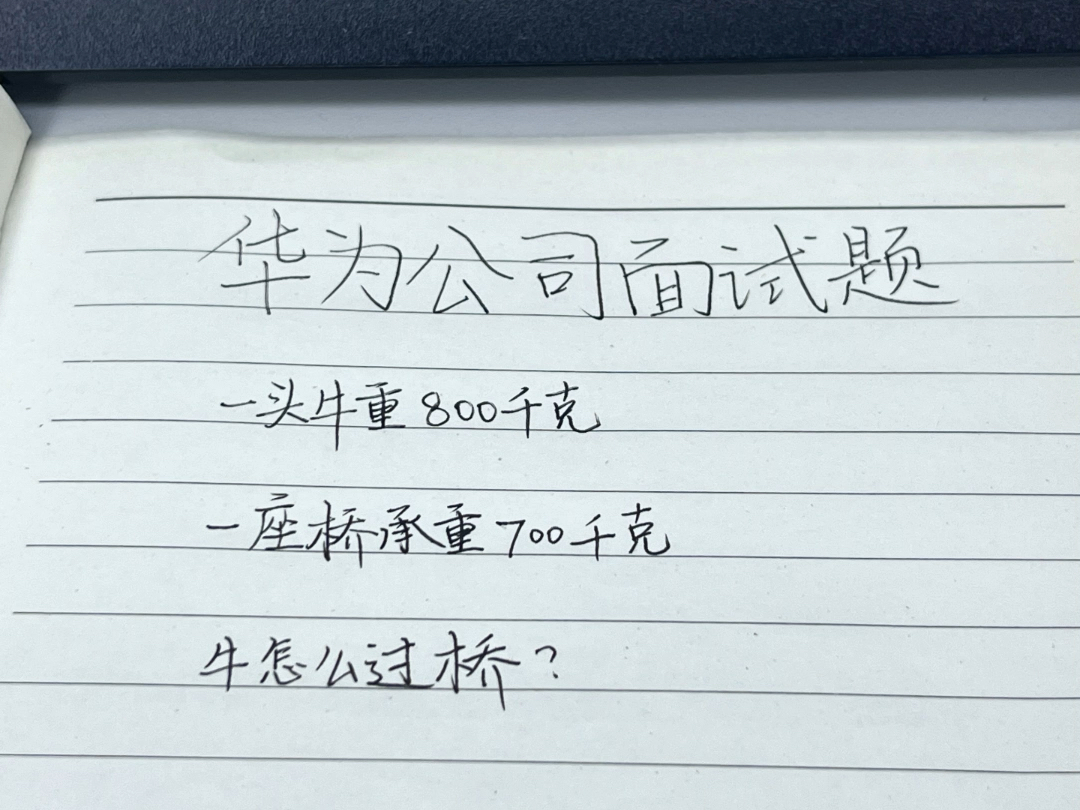 华为公司面试题
一头牛重800千克
一座桥承重700千克
牛怎么过桥？